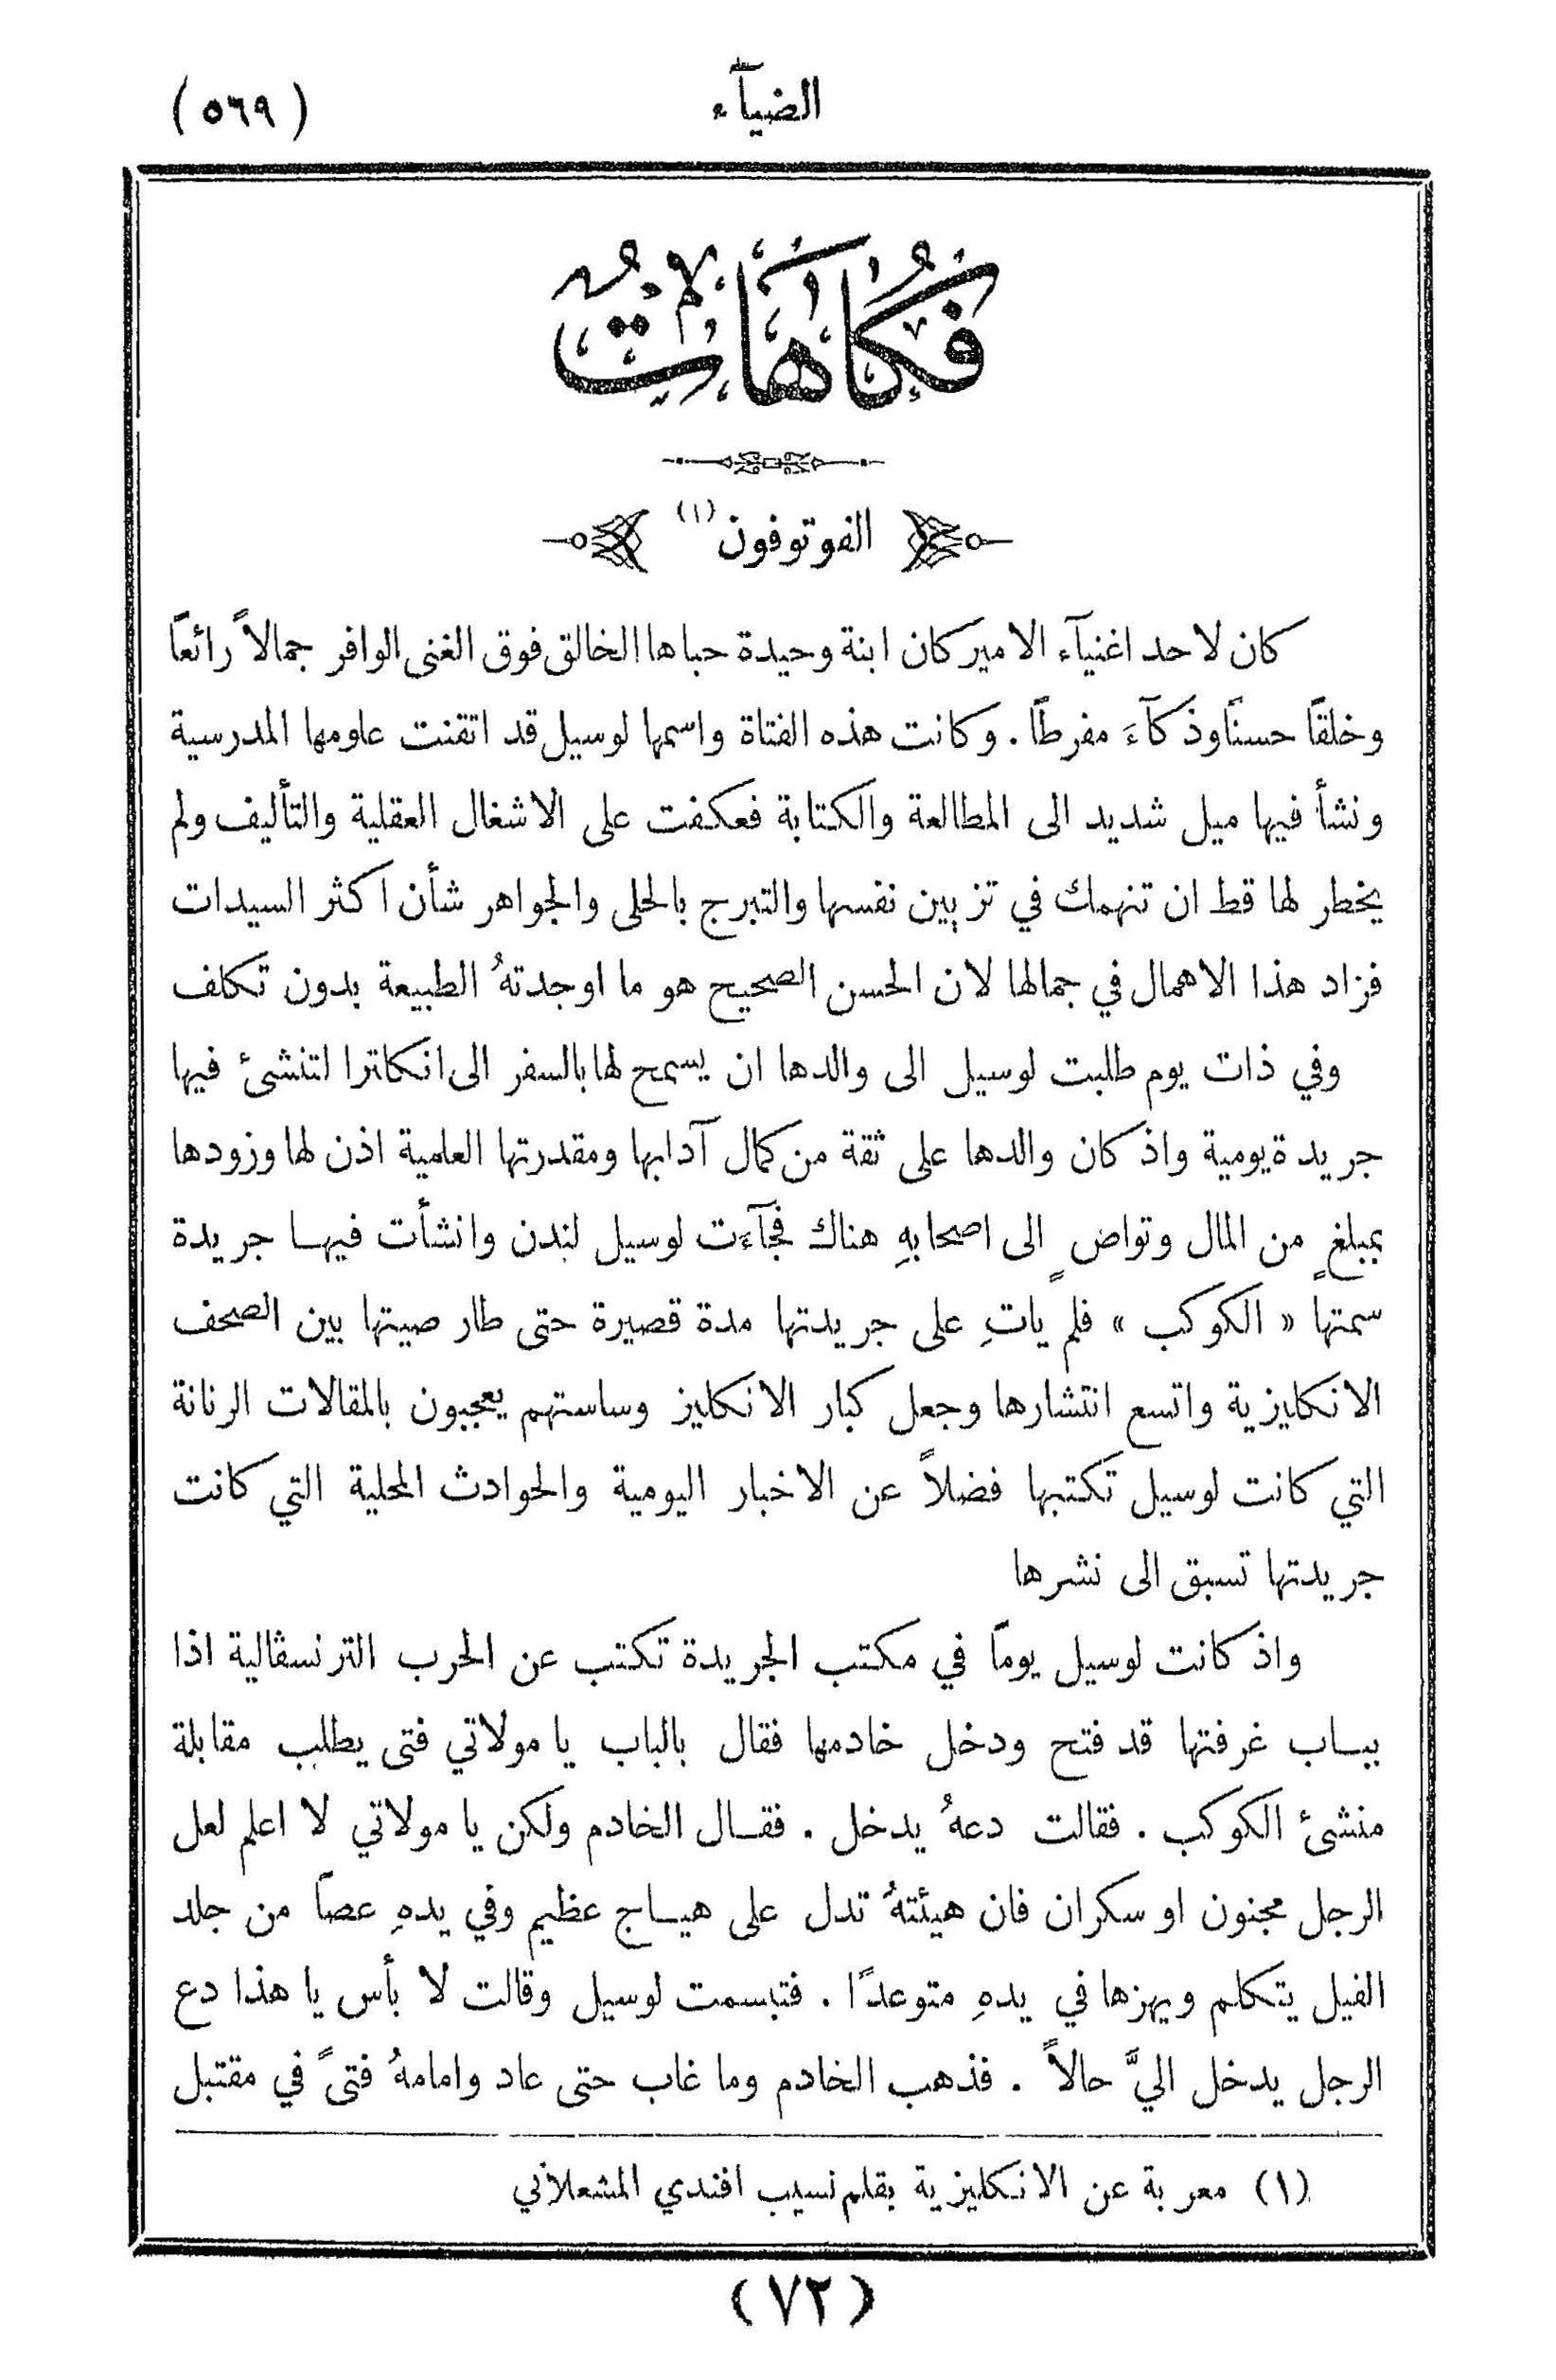 الضيآء
( ٥٦٩ )
فُكَاهَاتٌ
الفوتوفون (١)
كان لاحد اغنيآء الاميركان ابنة وحيدة حباها الخالق فوق الغنى الوافر جمالاً رائعاً
وخلقاً حسناً وذكآءً مفرطاً . وكانت هذه الفتاة واسمها لوسيل قد اتقنت علومها المدرسية
ونشأ فيها ميل شديد الى المطالعة والكتابة فعكفت على الاشغال العقلية والتأليف ولم
يخطر لها قط ان تنهمك في تزيين نفسها والتبرج بالحلى والجواهر شأن اكثر السيدات
فزاد هذا الاهمال في جمالها لان الحسن الصحيح هو ما اوجدتهُ الطبيعة بدون تكلف
وفي ذات يوم طلبت لوسيل الى والدها ان يسمح لها بالسفر الى انكلترا لتنشئ فيها
جريدة يومية واذ كان والدها على ثقة من كمال آدابها ومقدرتها العلمية اذن لها وزودها
بمبلغٍ من المال وتواصٍ الى اصحابهِ هناك فجآءت لوسيل لندن وانشأت فيهـا جريدة
سمتها « الكوكب » فلم يأتِ على جريدتها مدة قصيرة حتى طار صيتها بين الصحف
الانكليزية واتسع انتشارها وجعل كبار الانكليز وساستهم يعجبون بالمقالات الرنانة
التي كانت لوسيل تكتبها فضلاً عن الاخبار اليومية والحوادث المحلية التي كانت
جريدتها تسبق الى نشرها
واذ كانت لوسيل يوماً في مكتب الجريدة تكتب عن الحرب الترنسڤالية اذا
ببـاب غرفتها قد فتح ودخل خادمها فقال بالباب يا مولاتي فتى يطلب مقابلة
منشئ الكوكب . فقالت دعهُ يدخل . فقـال الخادم ولكن يا مولاتي لا اعلم لعل
الرجل مجنون او سكران فان هيئتهُ تدل على هيـاج عظيم وفي يدهِ عصاً من جلد
الفيل يتكلم ويهزها في يدهِ متوعداً . فتبسمت لوسيل وقالت لا بأس يا هذا دع
الرجل يدخل اليَّ حالاً . فذهب الخادم وما غاب حتى عاد وامامهُ فتىً في مقتبل
(١) معربة عن الانكليزية بقلم نسيب افندي المشعلاني
( ٧٢ )